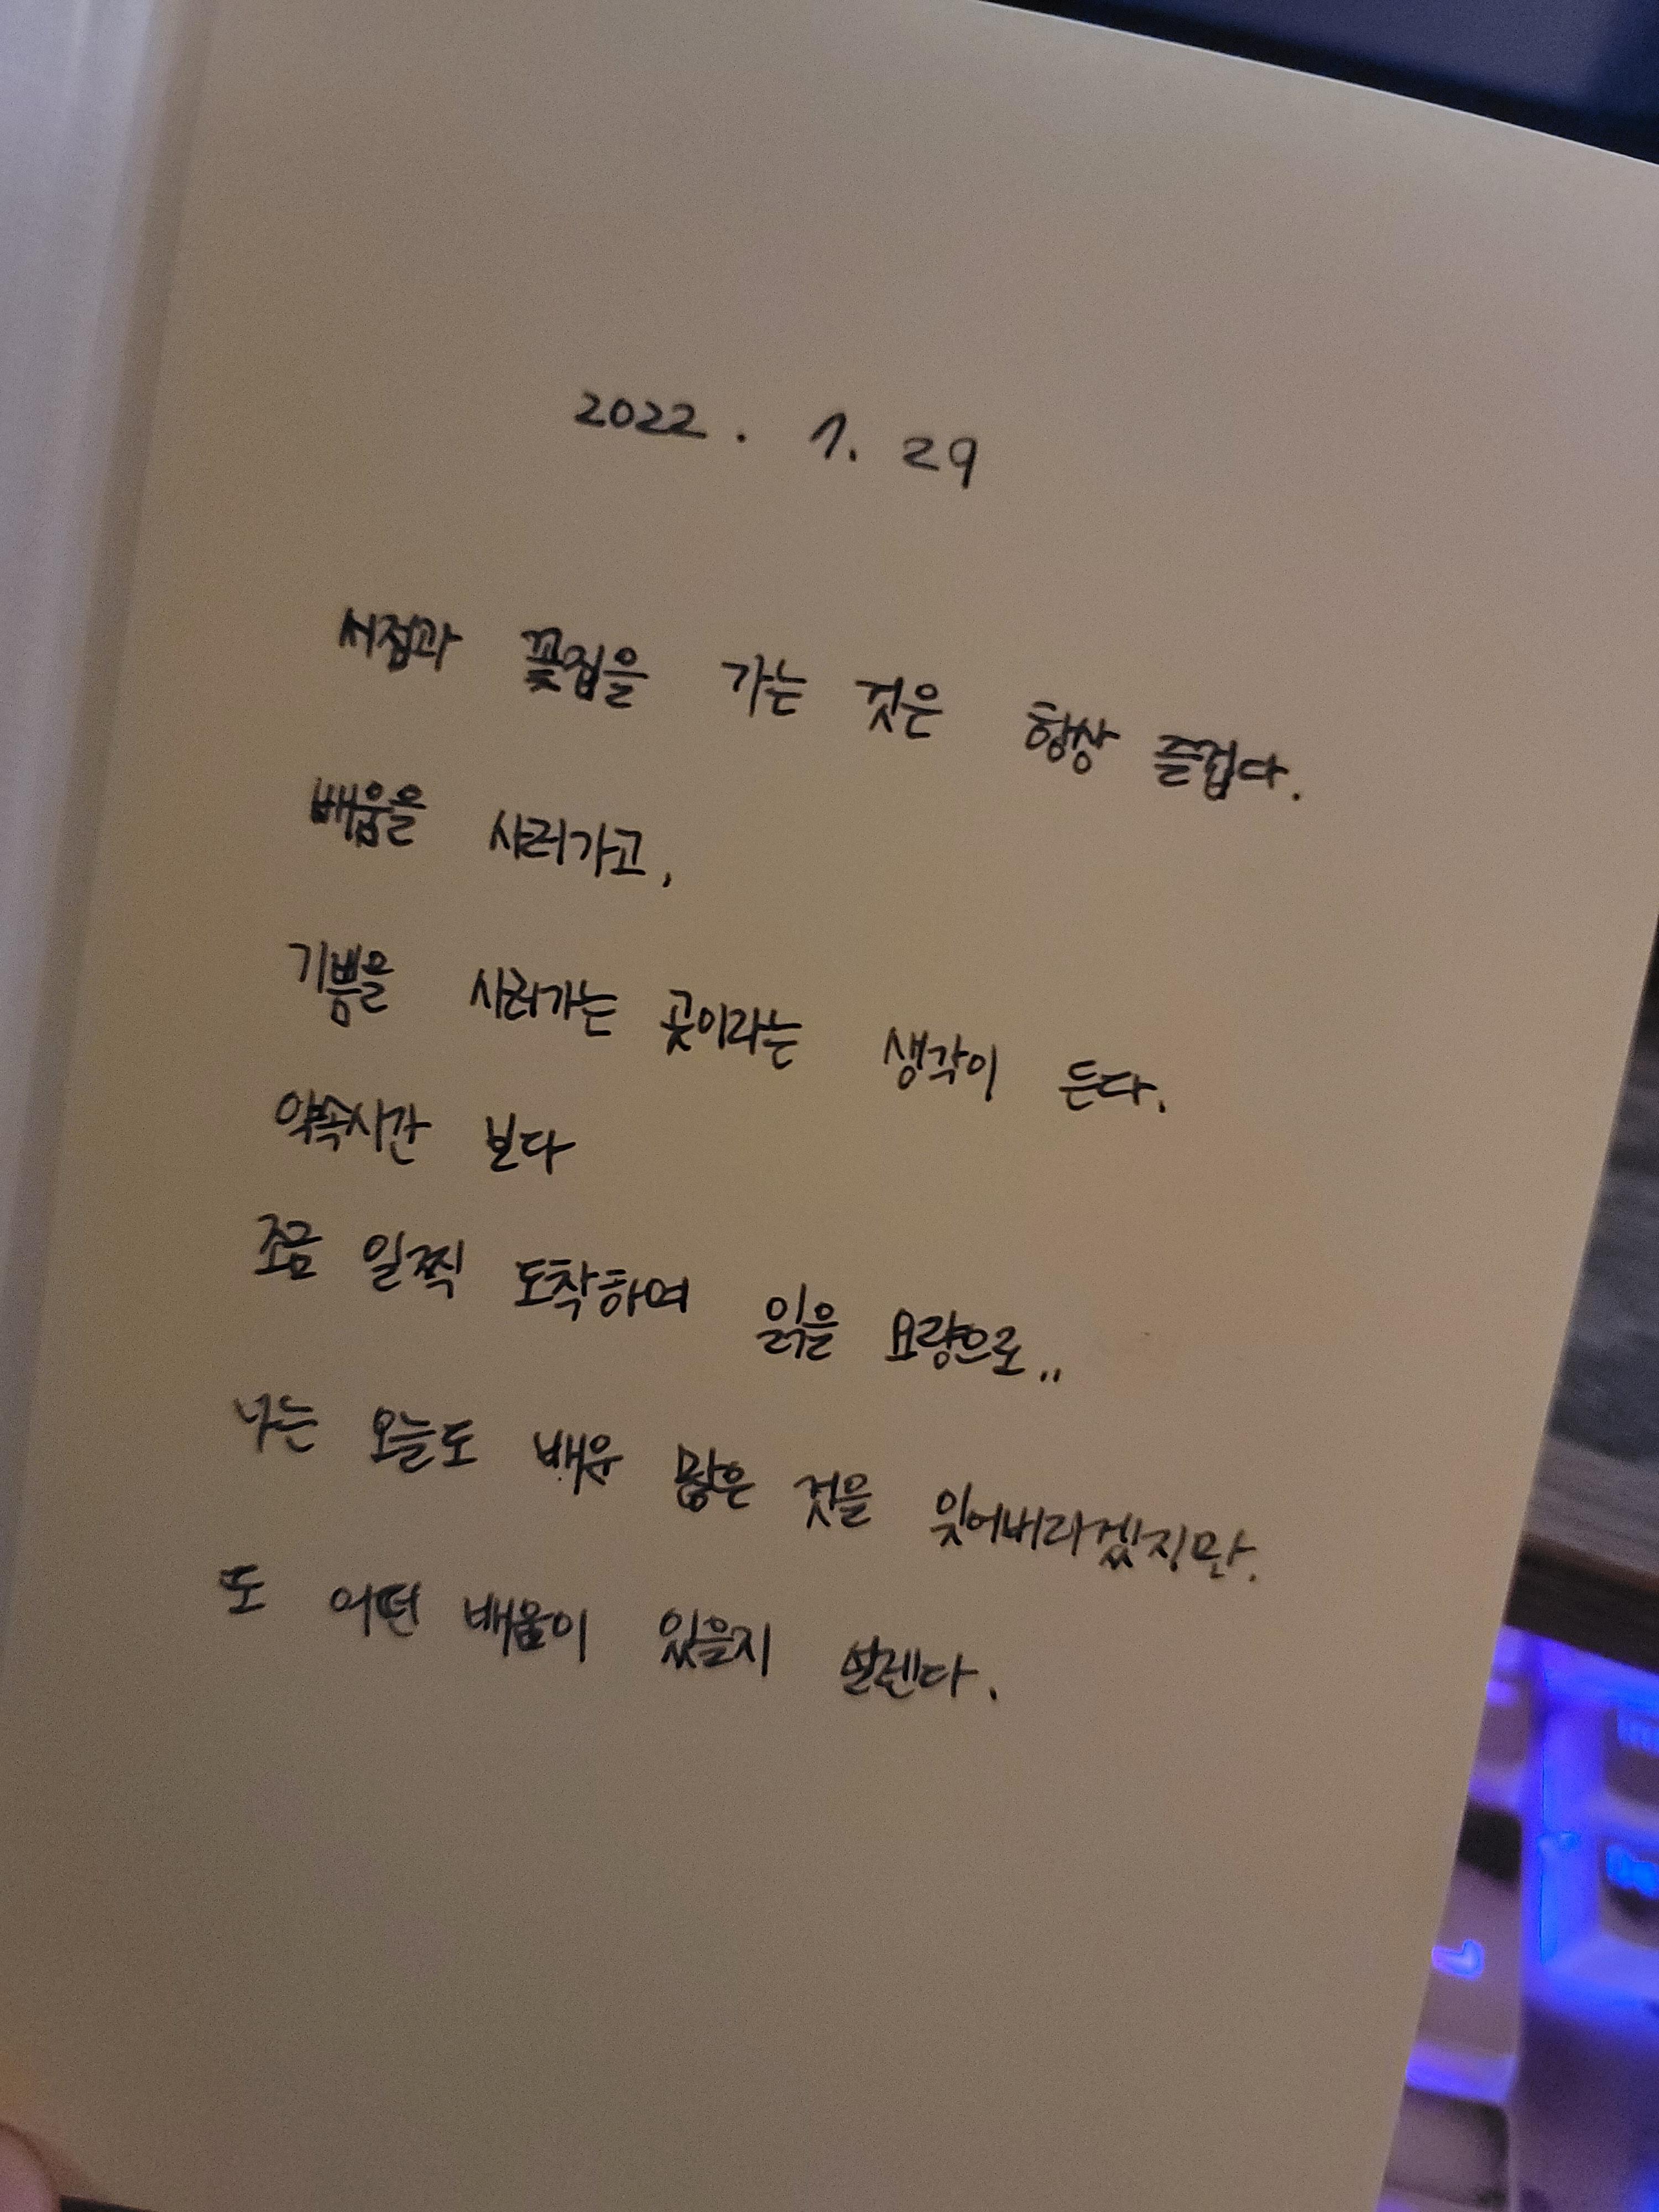 2022. 1. 29
서점과 꽃집을 가는 것은 항상 즐겁다.
배움을 사러가고,
기쁨을 사러가는 곳이라는 생각이 든다.
약속시간 보다
조금 일찍 도착하여 읽을 요량으로..
나는 오늘도 배운 많은 것을 잊어버리겠지만.
또 어떤 배움이 있을지 설렌다.